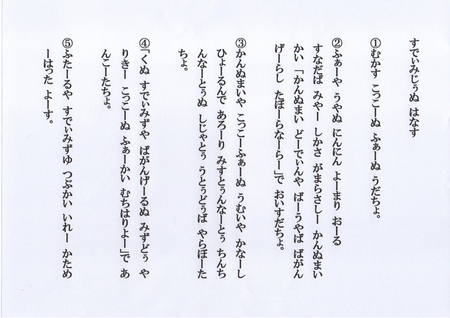 すでぃみじぅぬ はなす
①むかす こっこーぬ ふぁーぬ うだちょ。
②ふぁーや うやぬ にんにん よーまり おーる
すなだば みやー しかさ がまらさしー かんぬまい
かい「かんぬまい どーでぃんや ばーうやば ばがん
げーらし たぼーらなーらー」で おいすだちょ。
③かんぬまいや こっこーふぁーぬ うむいや かなーし
ひょーるんで あろーり みすとぅんなーとぅ ちんち
んなーとぅぬ しじゃとぅ うとぅどぅば やらぼーた
ちょ。
④「くぬ すでぃみずや ばがんげーるぬ みずどぅ や
りきー こっこーぬ ふぁーかい むちはりよー」で あ
んこーたちょ。
⑤ふたーるや すでぃみずゆ つぶかい いれー かため
ーはった よーす。